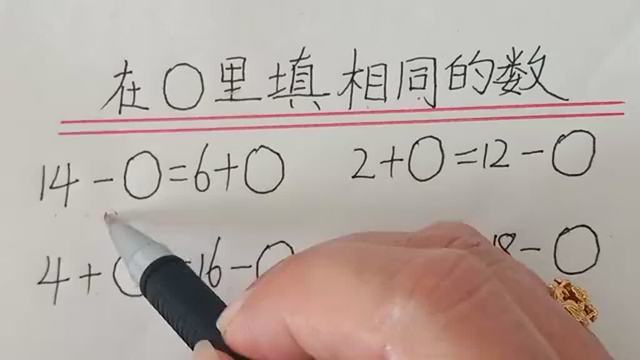 在○里填相同的数
14-○=6+○ 2+○=12-○
4+○=16-○ 18-○